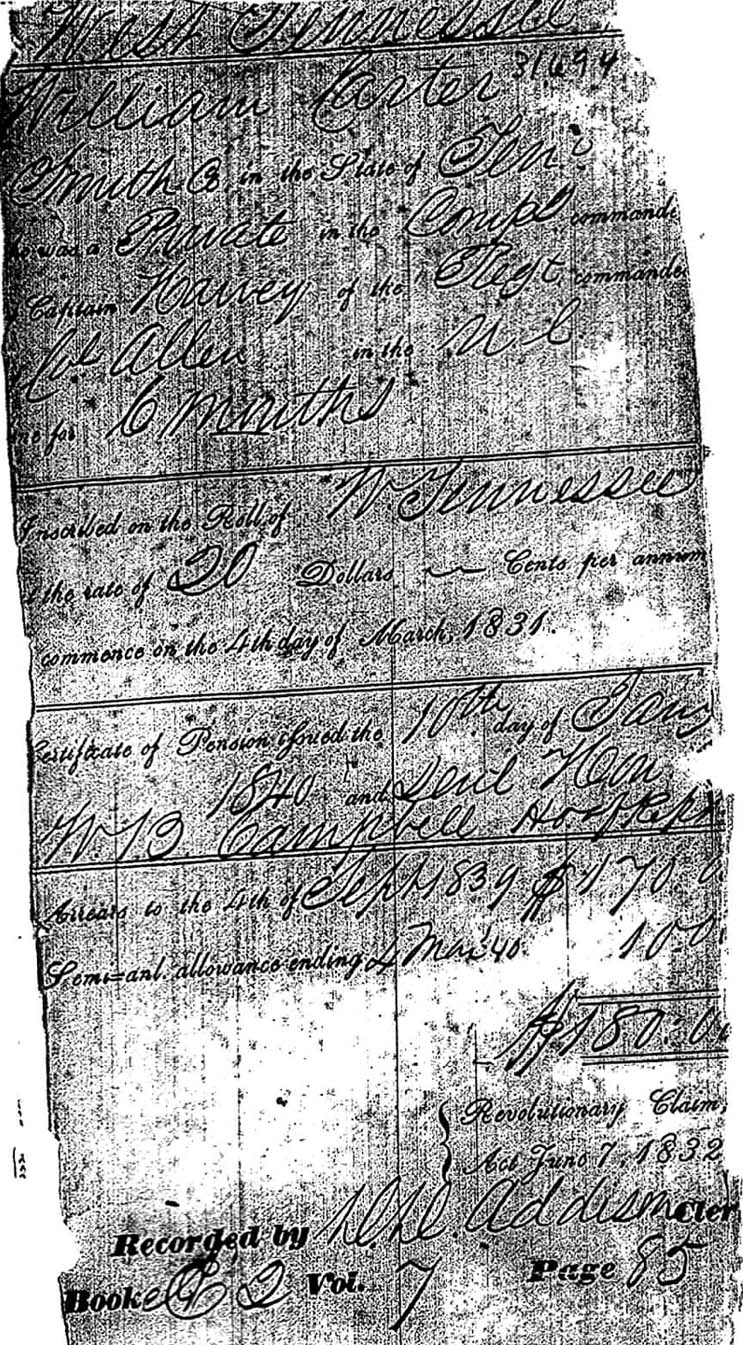 West Tennessee
William Carter 31694
Smith Co in the State of Ten
was a Private in the Comp'd command
Captain Harvey of the Regt commande
Col Allen in the N C
for 6 months
Inscribed on the Roll of W. Tennessee
the rate of 20 Dollars — Cents per annum
commence on the 4th day of March, 1831.
Certificate of Pension issued the 10th day of Jany
1840 and Sent Hon
W. B. Campbell Ho of Reps
Arrears to the 4th of Sept 1839 $170.0
Semi-anl. allowance ending 4 Mar '40 10.0
$180.0
Revolutionary Claim,
Act June 7, 1832
Recorded by Addison Cler
Book 2 Vol. 7 Page 85